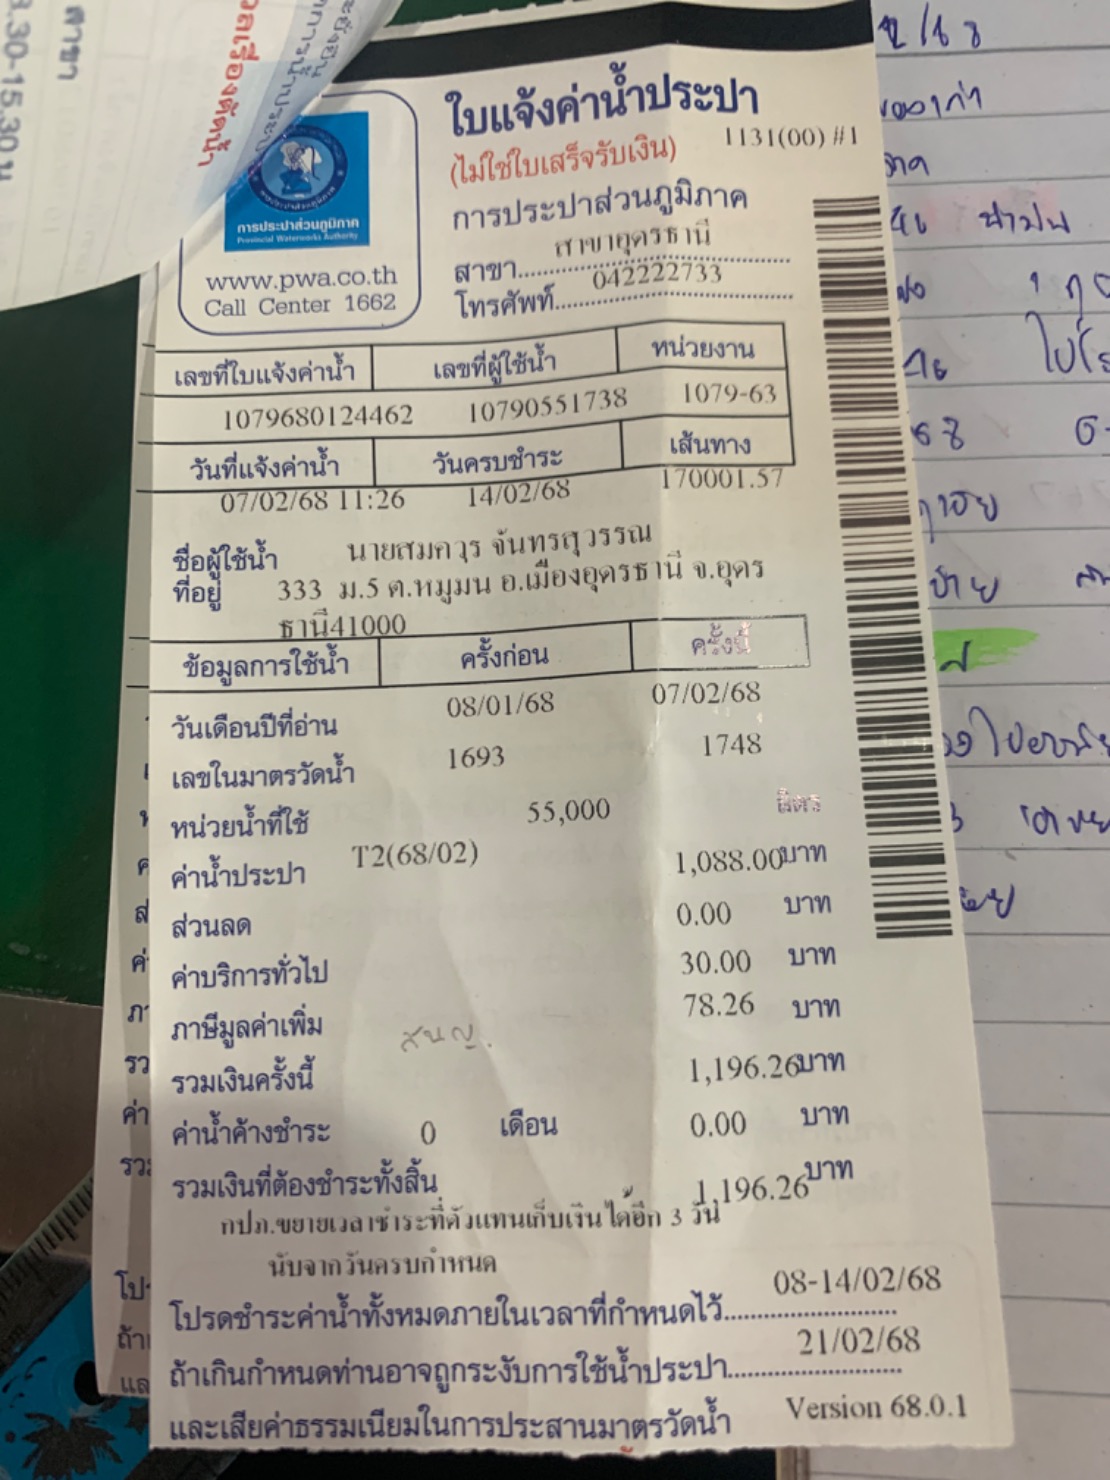 สาขา
.30-15.30 น
ใบแจ้งค่าน้ำประปา
(ไม่ใช่ใบเสร็จรับเงิน)
1131(00) #1
การประปาส่วนภูมิภาค
Provincial Waterworks Authority
www.pwa.co.th
Call Center 1662
การประปาส่วนภูมิภาค
สาขา สาขาอุดรธานี
โทรศัพท์ 042222733
เลขที่ใบแจ้งค่าน้ำ เลขที่ผู้ใช้น้ำ หน่วยงาน
1079680124462 10790551738 1079-63
วันที่แจ้งค่าน้ำ วันครบชำระ เส้นทาง
07/02/68 11:26 14/02/68 170001.57
ชื่อผู้ใช้น้ำ นายสมควร จันทรสุวรรณ
ที่อยู่ 333 ม.5 ต.หมูมน อ.เมืองอุดรธานี จ.อุดร
ธานี41000
ข้อมูลการใช้น้ำ ครั้งก่อน ครั้งนี้
วันเดือนปีที่อ่าน 08/01/68 07/02/68
เลขในมาตรวัดน้ำ 1693 1748
หน่วยน้ำที่ใช้ 55,000 ลิตร
ค่าน้ำประปา T2(68/02) 1,088.00บาท
ส่วนลด 0.00 บาท
ค่าบริการทั่วไป 30.00 บาท
ภาษีมูลค่าเพิ่ม 78.26 บาท
รวมเงินครั้งนี้ 1,196.26บาท
ค่าน้ำค้างชำระ 0 เดือน 0.00 บาท
รวมเงินที่ต้องชำระทั้งสิ้น 1,196.26บาท
กปภ.ขยายเวลาชำระที่ตัวแทนเก็บเงินได้อีก 3 วัน
นับจากวันครบกำหนด
โปรดชำระค่าน้ำทั้งหมดภายในเวลาที่กำหนดไว้ 08-14/02/68
ถ้าเกินกำหนดท่านอาจถูกระงับการใช้น้ำประปา 21/02/68
และเสียค่าธรรมเนียมในการประสานมาตรวัดน้ำ Version 68.0.1